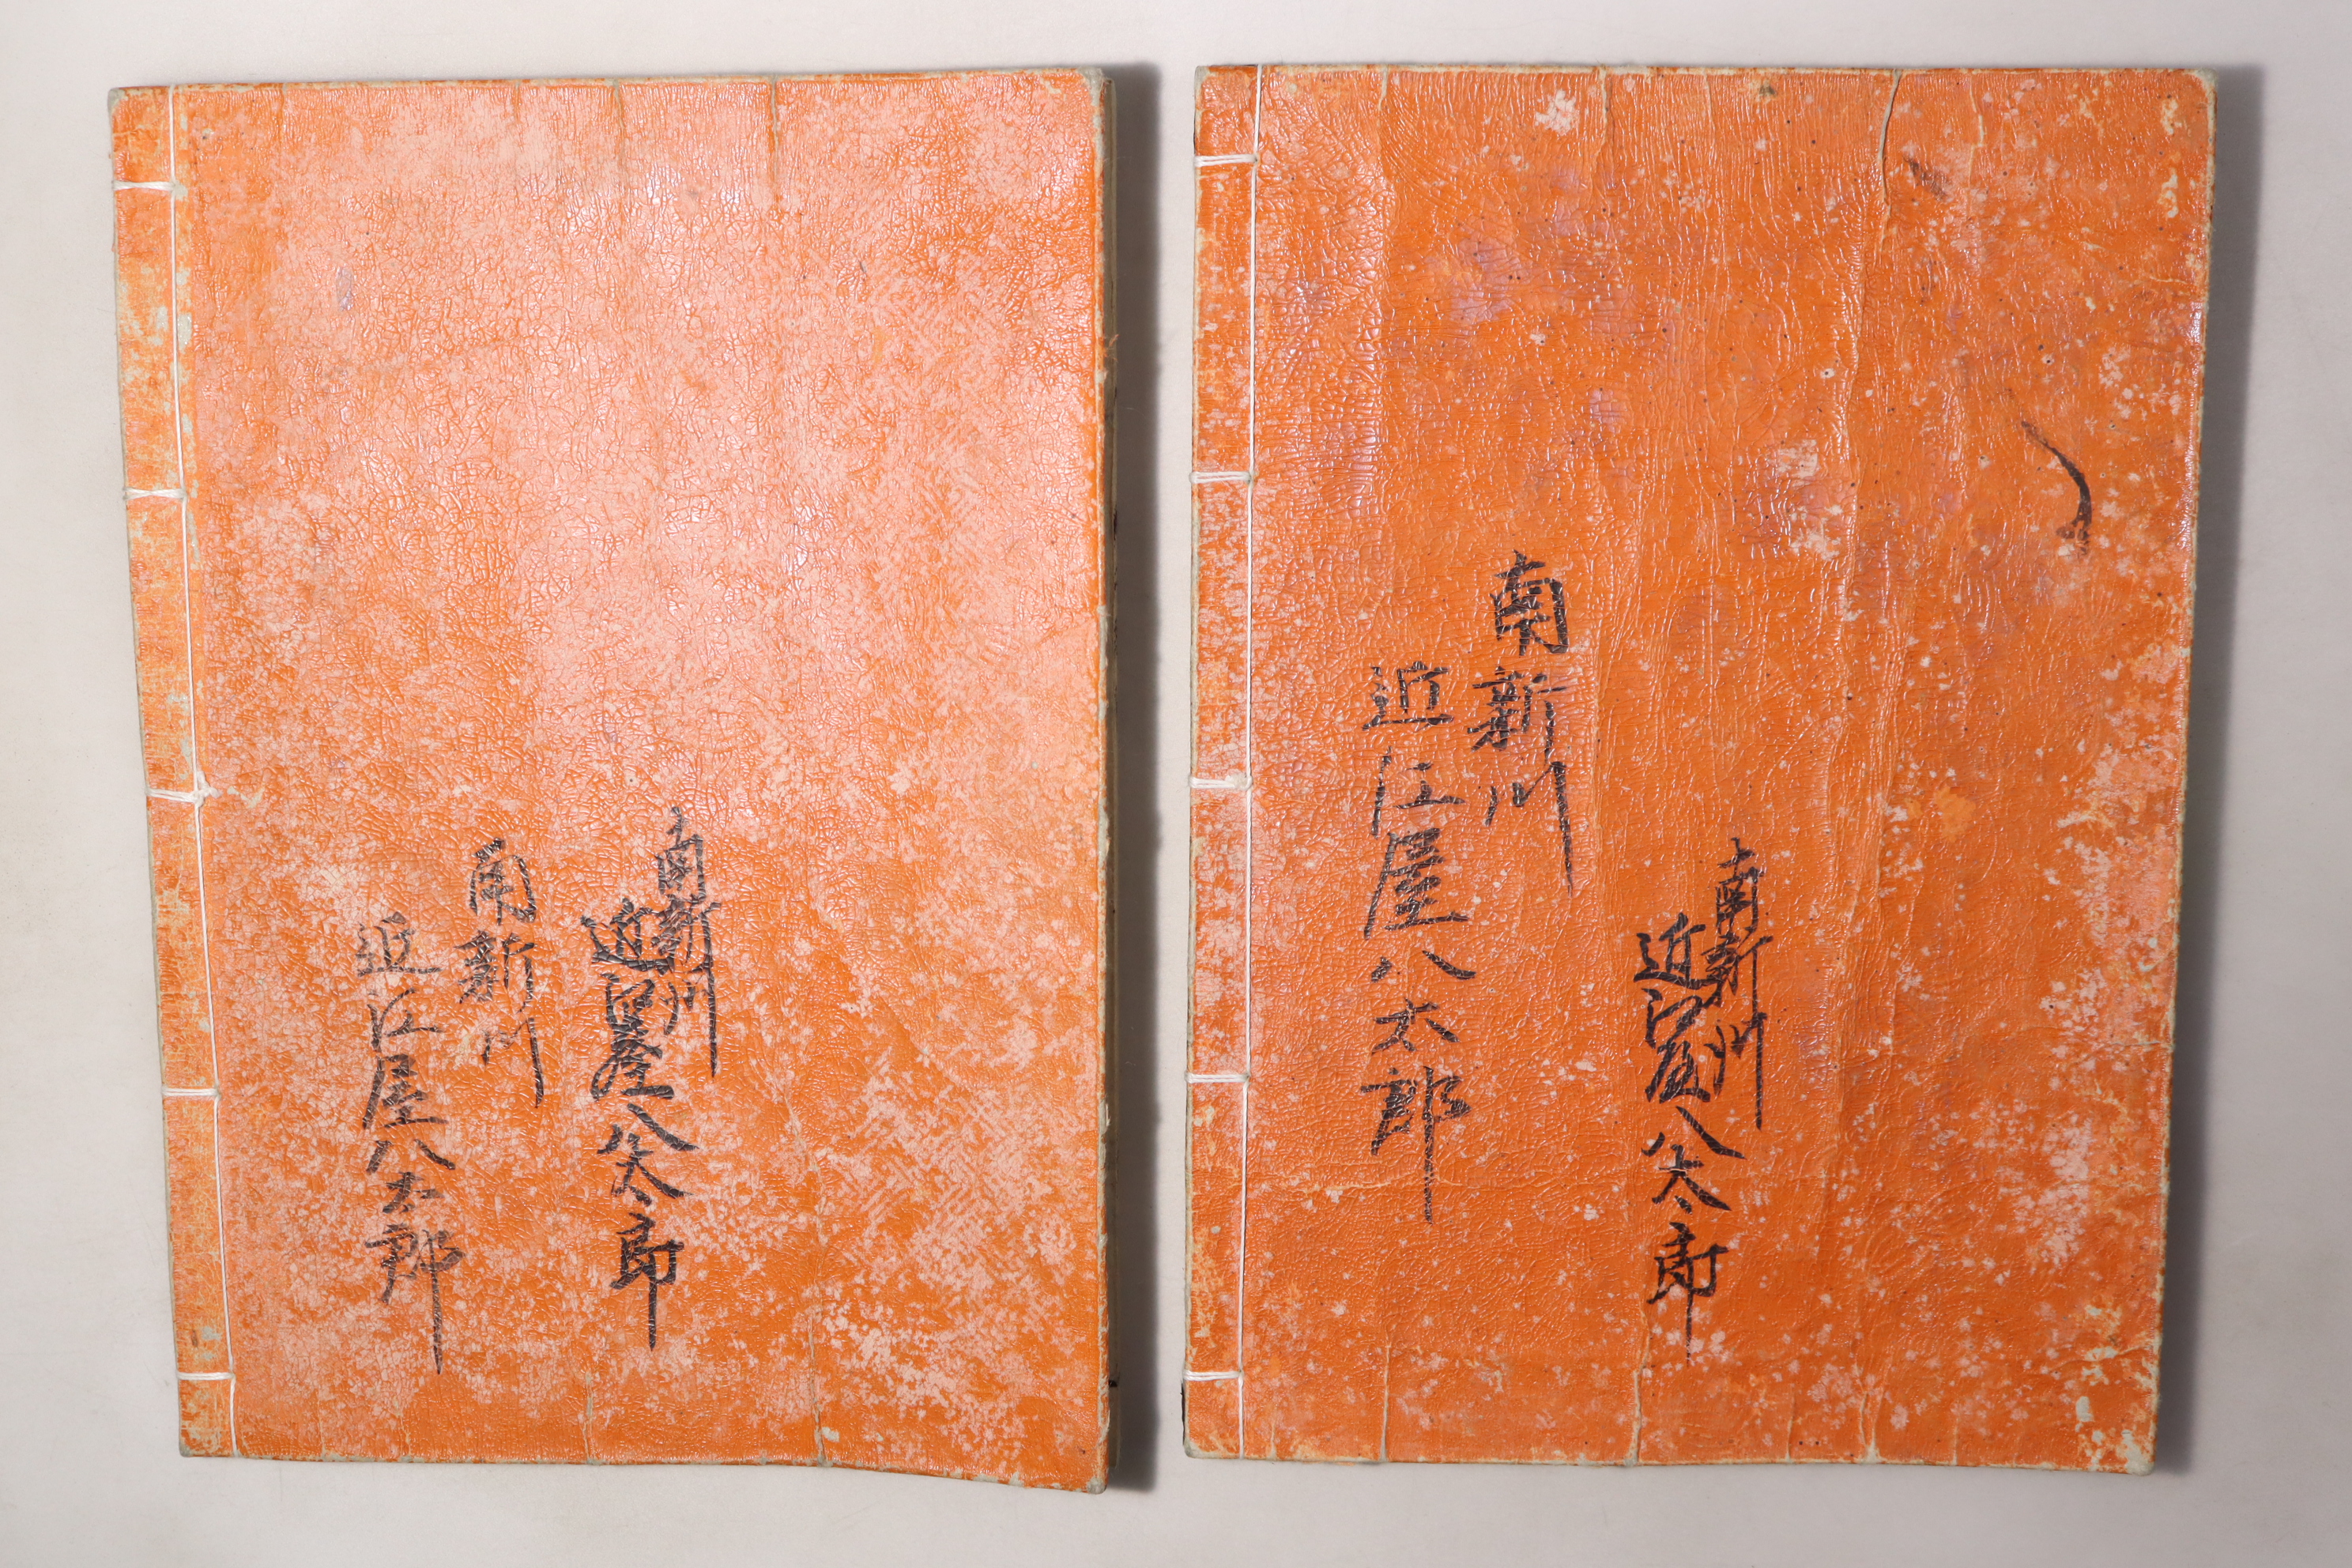 南新川
近江屋八太郎
南新川
近江屋八太郎
南新川
近江屋八太郎
南新川
近江屋八太郎